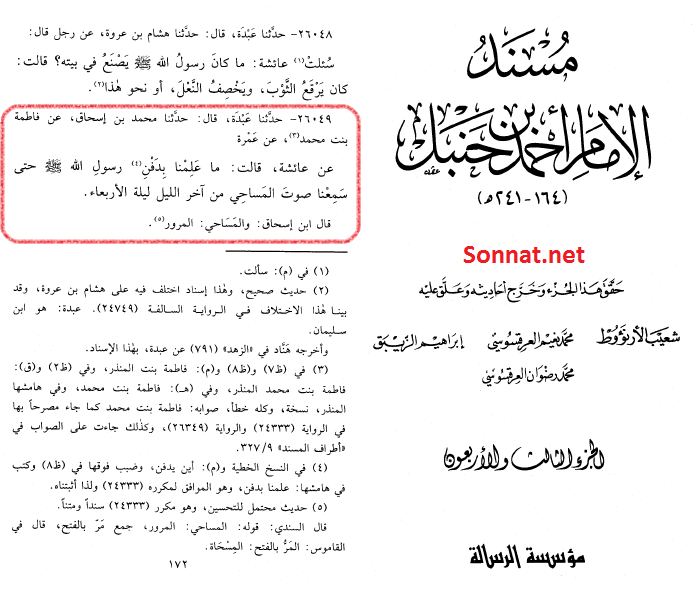 مُسْنَدُ
الإمَامِ أحْمَدَ بنِ حَنْبَل
(١٦٤-٢٤١هـ)
Sonnat.net
حَقّقَ هَذا الجُزء وَخَرّجَ أحَاديثه وَعَلّقَ عَليْه
شعَيبُ الأرنؤوط محمّد نعيم العرقسُوسي إبراهيم الزيبق
محمّد رضوان العرقسُوسي
الجزء الثالث والأربعون
مؤسسة الرسالة
٢٦٠٤٨- حدَّثنا عَبْدَة، قال: حدَّثنا هشام بن عروة، عن رجل قال:
سُئلتْ(١) عائشة: ما كانَ رسولُ الله ﷺ يَصْنَعُ في بيته؟ قالت:
كان يَرْقَعُ الثَّوْبَ، ويَخْصِفُ النَّعْلَ، أو نحو هٰذا(٢).
٢٦٠٤٩- حدَّثنا عَبْدَة، قال: حدَّثنا محمد بن إسحاق، عن فاطمة
بنت محمد(٣)، عن عَمْرة
عن عائشة، قالت: ما عَلِمْنا بِدَفْنِ(٤) رسولِ الله ﷺ حتى
سَمِعْنا صوتَ المَساحِي من آخر الليل ليلة الأربعاء.
قال ابن إسحاق: والمَسَاحي: المرور(٥).
(١) في (م): سألت.
(٢) حديث صحيح، وهٰذا إسناد اختلف فيه على هشام بن عروة، وقد
بينا هٰذا الاختلاف في الرواية السالفة (٢٤٧٤٩). عبدة: هو ابن
سليمان.
وأخرجه هَنَّاد في «الزهد» (٧٩١) عن عبدة، بهٰذا الإسناد.
(٣) في (ظ٧) و(ظ٨) و(م): فاطمة بنت المنذر، وفي (ظ٢) و(ق):
فاطمة بنت محمد المنذر، وفي (هـ): فاطمة بنت محمد، وفي هامشها
المنذر، نسخة، وكله خطأ، صوابه: فاطمة بنت محمد كما جاء مصرحاً بها
في الرواية (٢٤٣٣٣) والرواية (٢٦٣٤٩)، وكذلك جاءت على الصواب في
«أطراف المسند» ٣٢٧/٩.
(٤) في النسخ الخطية و(م): أين يدفن، وضبب فوقها في (ظ٨) وكتب
في هامشها: علمنا بدفن، وهو الموافق لمكرره (٢٤٣٣٣) ولذا أثبتناه.
(٥) حديث محتمل للتحسين، وهو مكرر (٢٤٣٣٣) سنداً ومتناً.
قال السندي: قوله: المساحي: المرور، جمع مَرّ بالفتح، قال في
القاموس: المَرُّ بالفتح: المِسْحَاة.
١٧٢